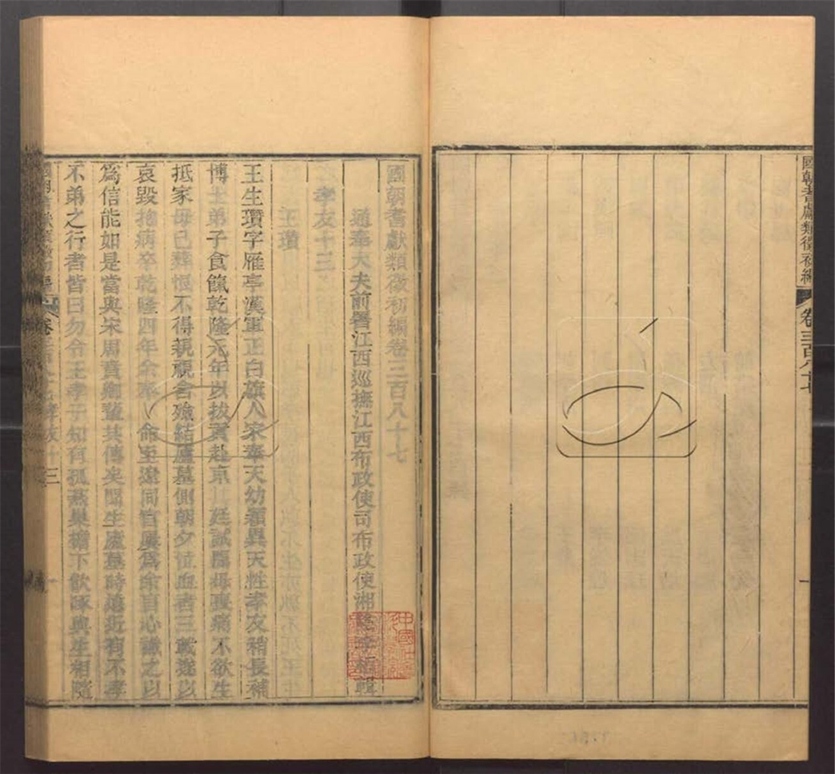 國朝耆獻類徵初編
卷三百八十七
一
國朝耆獻類徵初編卷三百八十七
通奉大夫前署江西巡撫江西布政使司布政使湘陰李桓輯
孝友十三
王瓚
王生瓚字雁亭漢軍正白旗人宋奉天幼穎異天性孝友稍長補
博士弟子食餼乾隆元年以拔貢赴京廷試聞母喪痛不欲生
抵家母已葬恨不得親視含殮結廬墓側朝夕泣血者三載遂以
哀毀抱病卒乾隆四年余奉命至遼同官屢為余言心識之以
為信能如是當與宋周

時

有不孝
不弟之行者皆曰勿令王孝子知有孤燕巢櫩下飲啄與生相隨